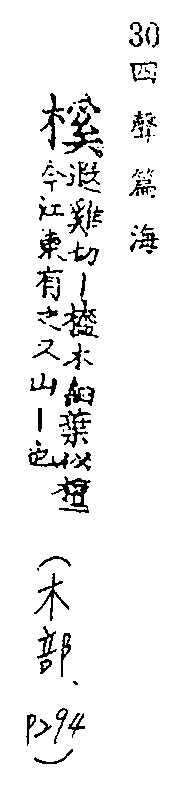 30 四聲篇海
榽 遐雞切丨橀木細葉似檀
今江東有之又山丨也
(木部、P294)